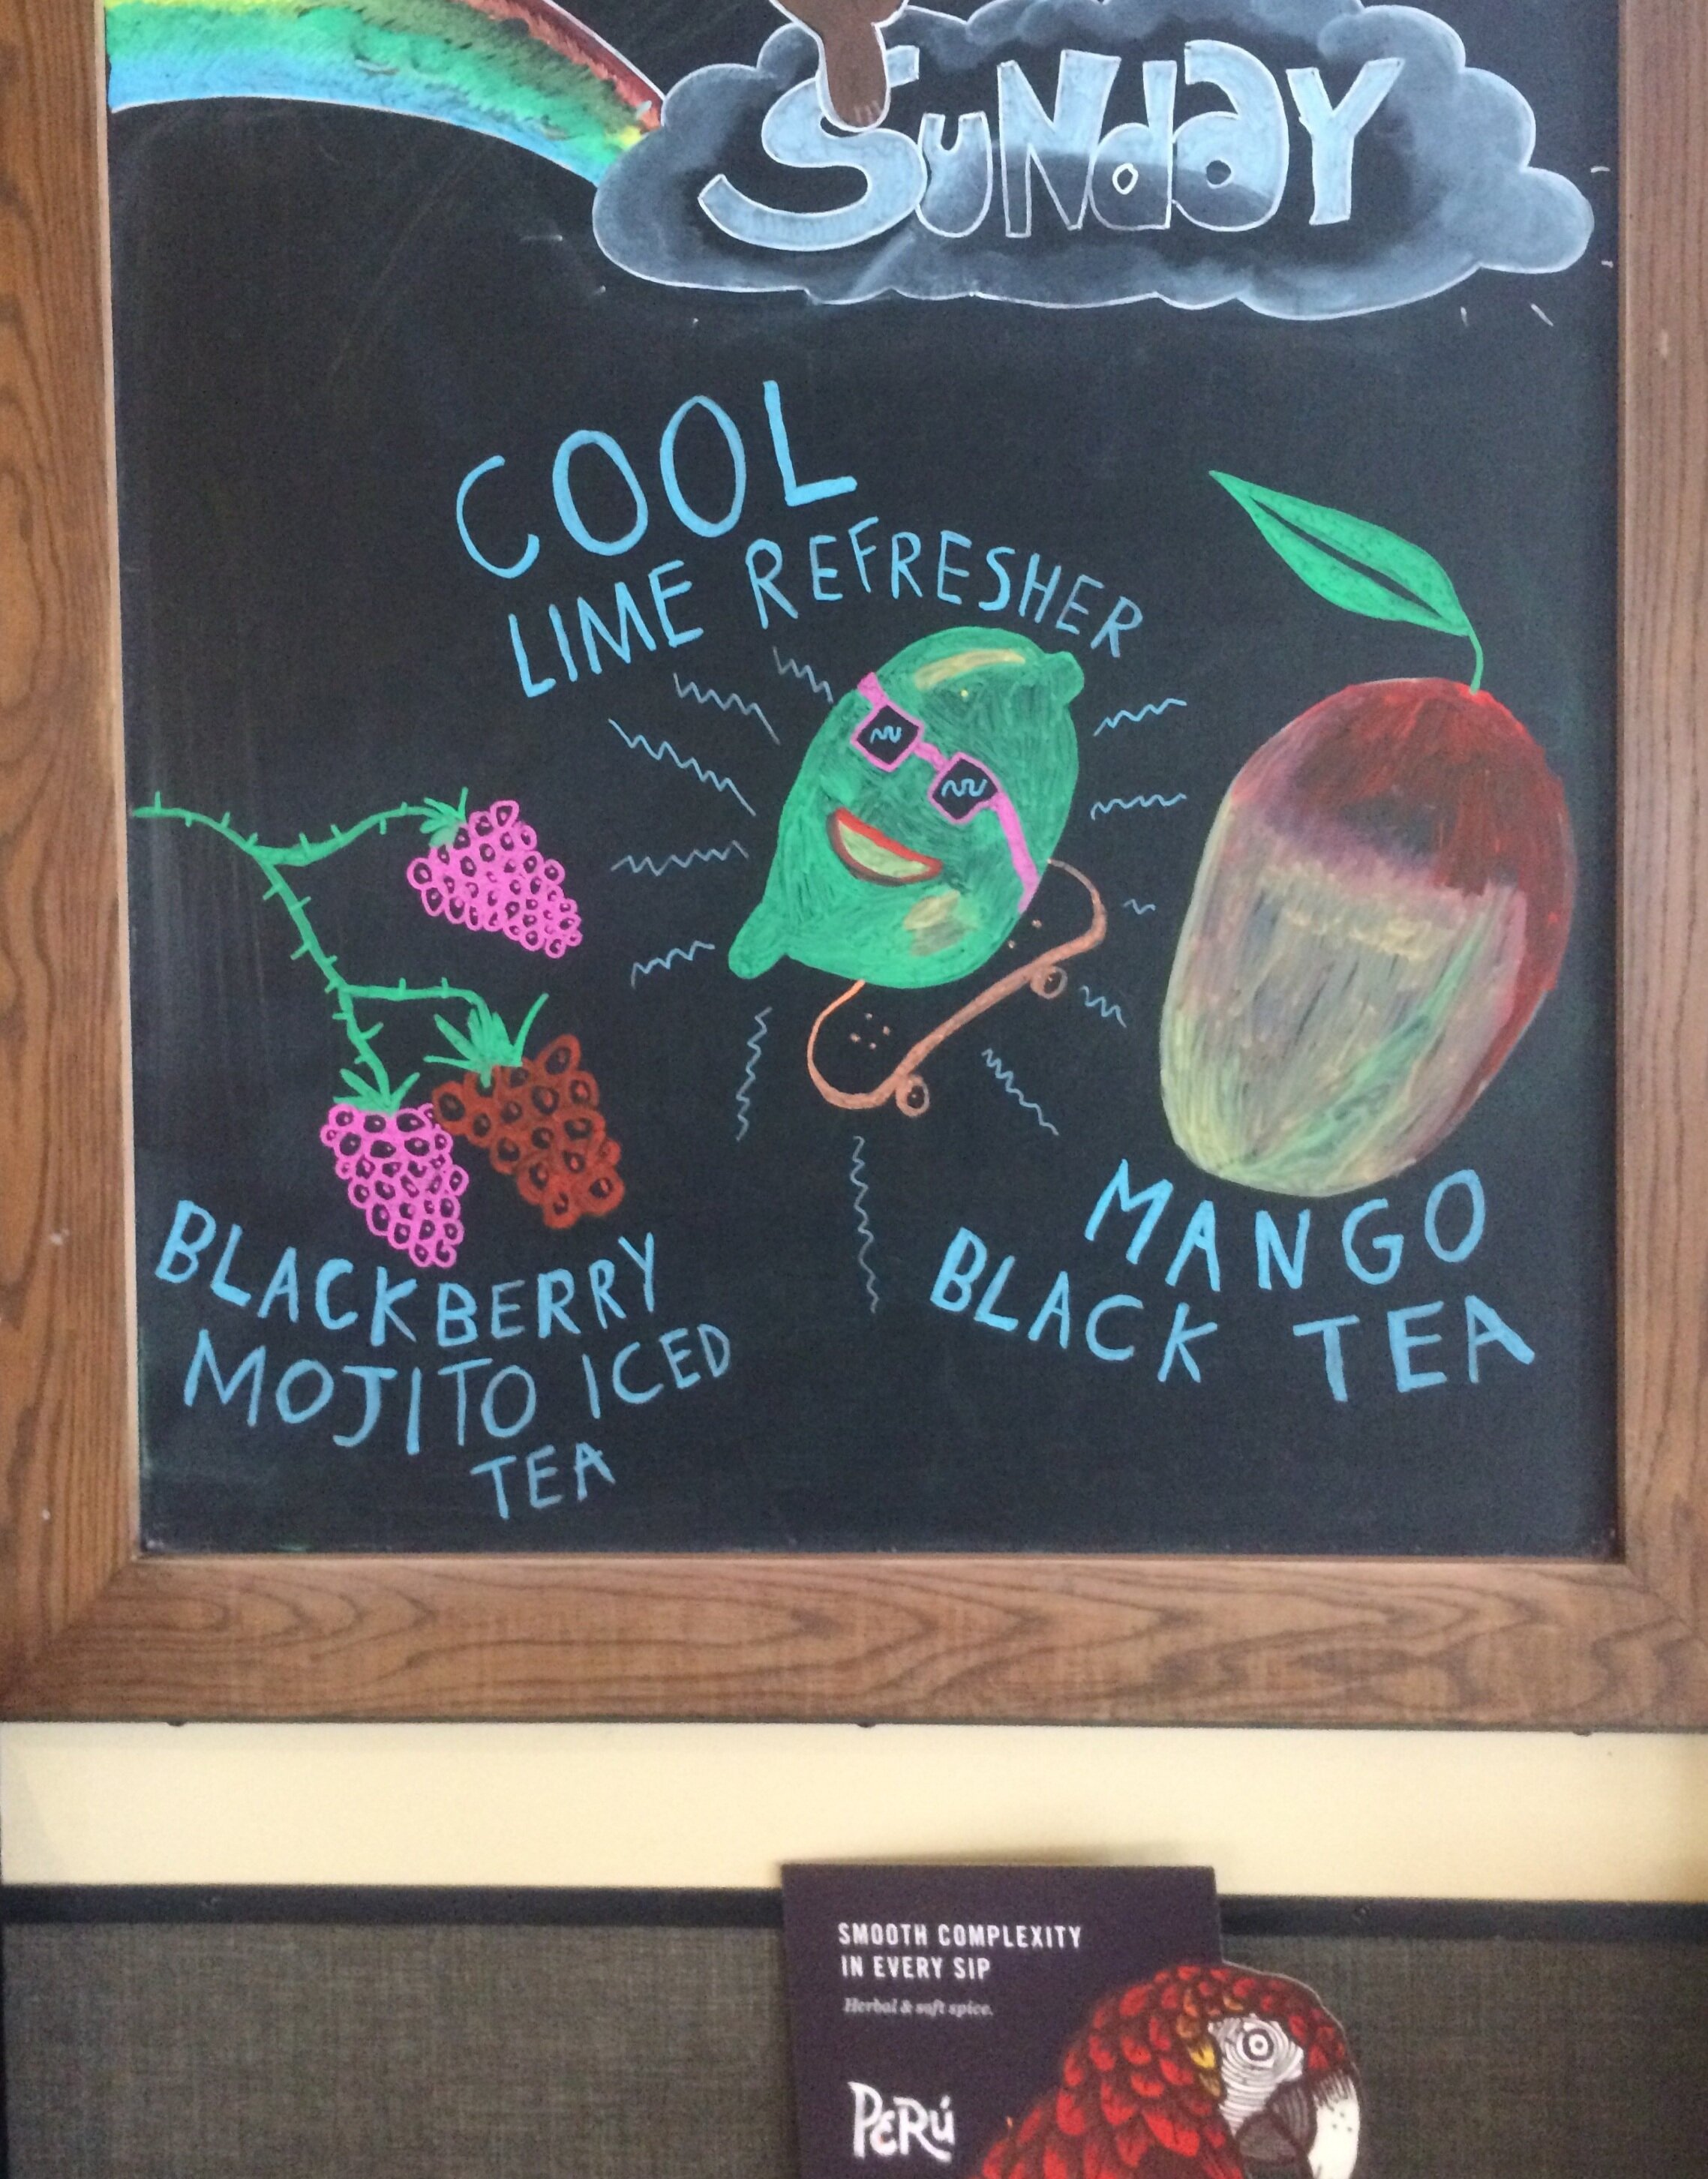 SuNdaY
COOL
LIME REFRESHER
BLACKBERRY
MOJITO ICED
TEA
MANGO
BLACK TEA
SMOOTH COMPLEXITY
IN EVERY SIP
Herbal & soft spice.
PERÚ